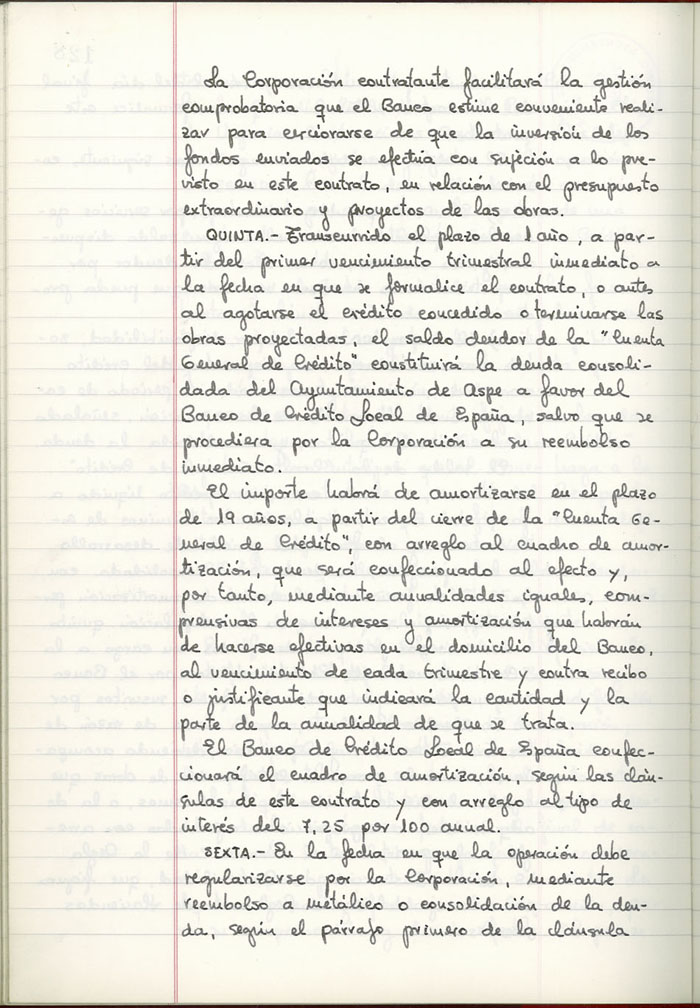 La Corporación contratante facilitará la gestión
comprobatoria que el Banco estime conveniente reali-
zar para cerciorarse de que la inversión de los
fondos enviados se efectúa con sujeción a lo pre-
visto en este contrato, en relación con el presupuesto
extraordinario y proyectos de las obras.
QUINTA.- Transcurrido el plazo de 1 año, a par-
tir del primer vencimiento trimestral inmediato a
la fecha en que se formalice el contrato, o antes
al agotarse el crédito concedido o terminarse las
obras proyectadas, el saldo deudor de la "Cuenta
General de Crédito" constituirá la deuda consoli-
dada del Ayuntamiento de Aspe a favor del
Banco de Crédito Local de España, salvo que se
procediera por la Corporación a su reembolso
inmediato.
El importe habrá de amortizarse en el plazo
de 19 años, a partir del cierre de la "Cuenta Ge-
neral de Crédito", con arreglo al cuadro de amor-
tización, que será confeccionado al efecto y,
por tanto, mediante anualidades iguales, com-
prensivas de intereses y amortización que habrán
de hacerse efectivas en el domicilio del Banco,
al vencimiento de cada trimestre y contra recibo
o justificante que indicará la cantidad y la
parte de la anualidad de que se trata.
El Banco de Crédito Local de España confec-
cionará el cuadro de amortización, según las cláu-
sulas de este contrato y con arreglo al tipo de
interés del 7,25 por 100 anual.
SEXTA.- En la fecha en que la operación debe
regularizarse por la Corporación, mediante
reembolso a metálico o consolidación de la deu-
da, según el párrafo primero de la cláusula